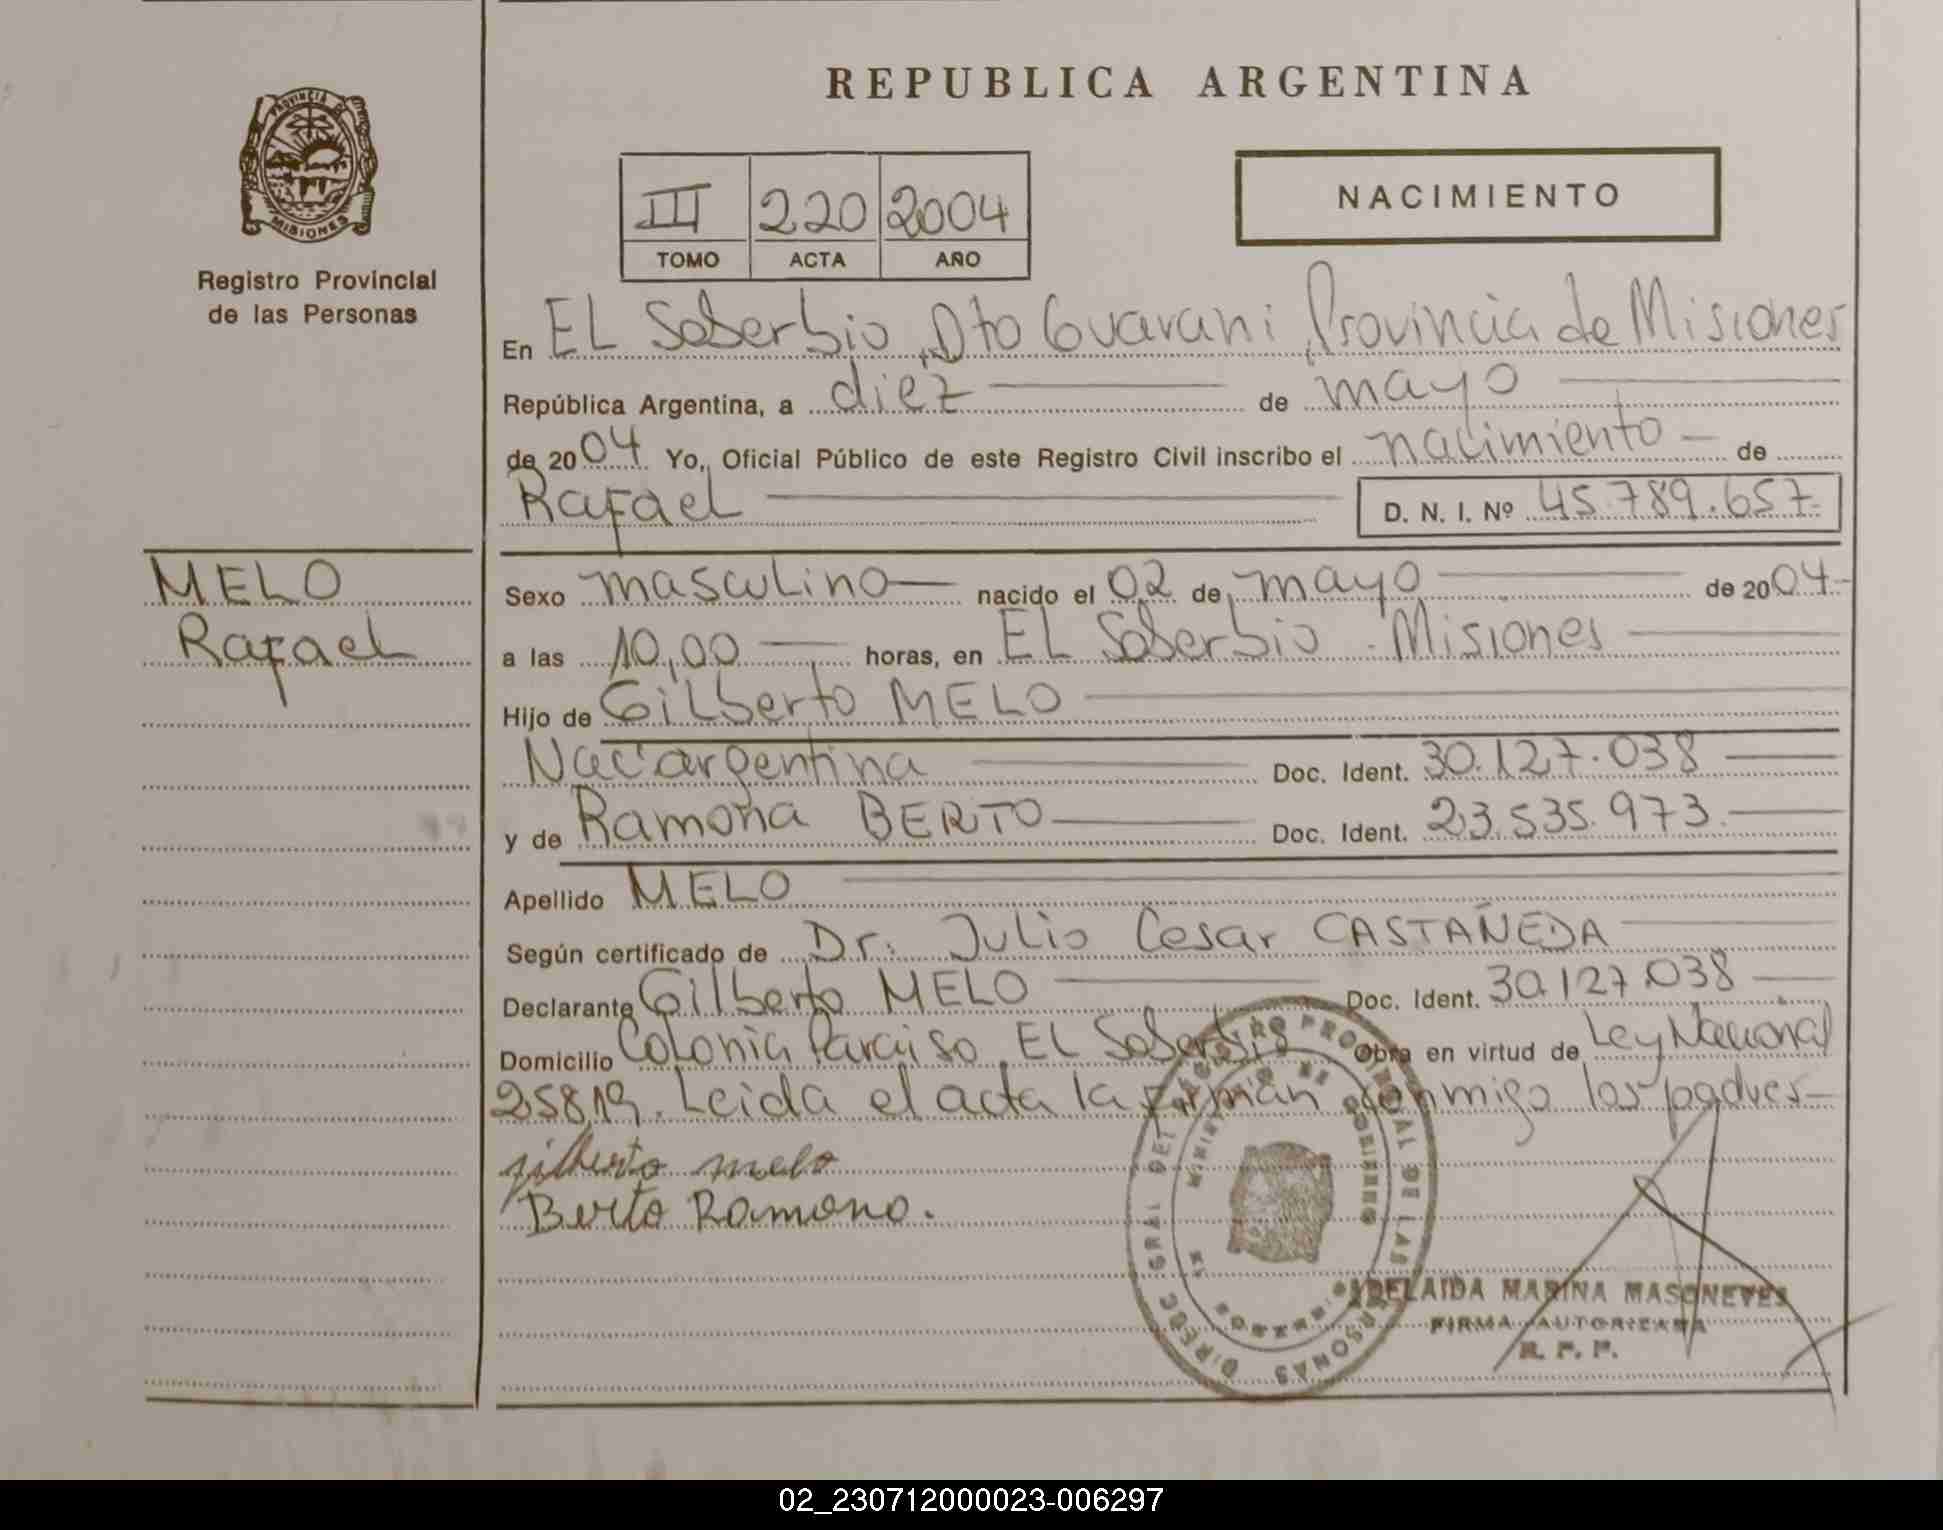 REPUBLICA ARGENTINA
PROVINCIA DE
MISIONES
Registro Provincial
de las Personas
III 220 2004
TOMO ACTA AÑO
NACIMIENTO
En EL Soberbio, Dto Guarani Provincia de Misiones
República Argentina, a diez de mayo
de 2004 Yo, Oficial Público de este Registro Civil inscribo el nacimiento de
Rafael D. N. I. Nº 45.789.657
MELO
Rafael
Sexo masculino nacido el 02 de mayo de 2004
a las 10,00 horas, en EL Soberbio - Misiones
Hijo de Gilberto MELO
Nac argentina Doc. Ident. 30.127.038
y de Ramona BERTO Doc. Ident. 23.535.973
Apellido MELO
Según certificado de Dr. Julio Cesar CASTAÑEDA
Declarante Gilberto MELO Doc. Ident. 30.127.038
Domicilio Colonia Paraiso, EL Soberbio Obra en virtud de Ley Nacional
25819. Leida el acta la firman conmigo los padres
gilberto melo
Berto Ramona.
DIREC. GRAL DEL REGISTRO PROVINCIAL DE LAS PERSONAS
MINISTERIO DE GOBIERNO
MISIONES
ADELAIDA MARINA MASONEVES
FIRMA AUTORIZADA
R. P. P.
02_230712000023-006297